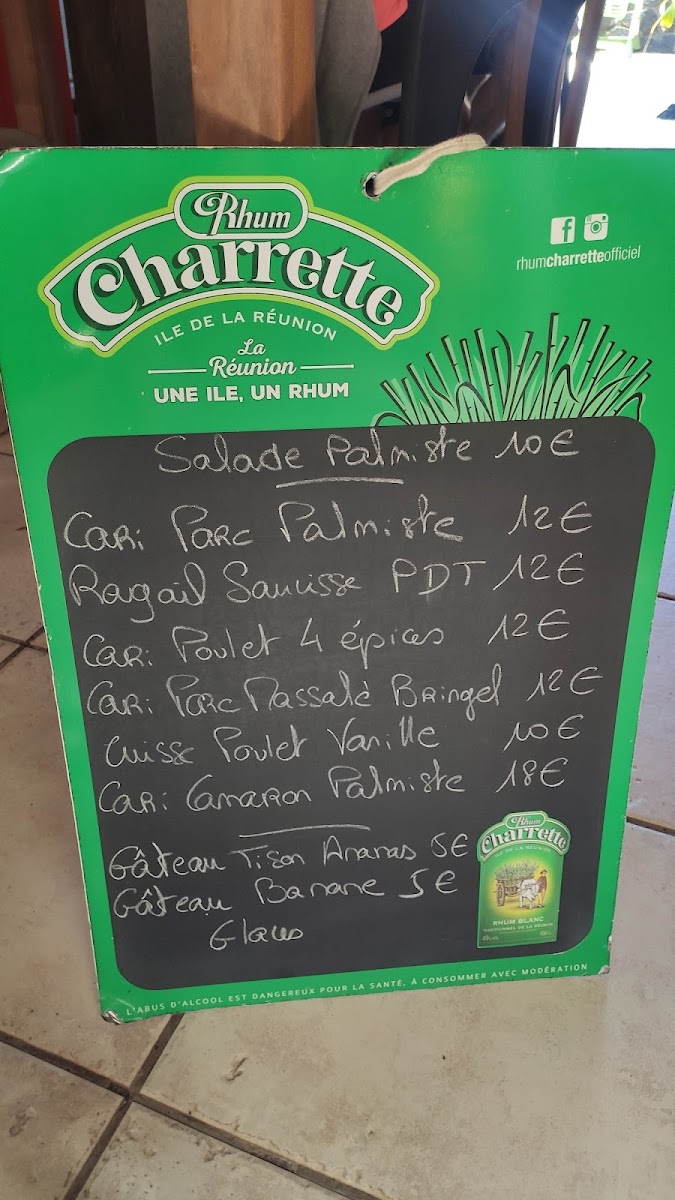 Rhum
Charrette
ILE DE LA RÉUNION
La
Réunion
UNE ILE, UN RHUM
rhumcharretteofficiel
Salade Palmiste 10€
Cari Porc Palmiste 12€
Ragail Saucisse PDT 12€
Cari Poulet 4 épices 12€
Cari Porc Massalé Bringel 12€
Cuisse Poulet Vanille 10€
Cari Camaron Palmiste 18€
Gâteau Tison Ananas 5€
Gâteau Banane 5€
Glaces
Rhum
Charrette
ILE DE LA RÉUNION
RHUM BLANC
TRADITIONNEL DE LA RÉUNION
L'ABUS D'ALCOOL EST DANGEREUX POUR LA SANTÉ, À CONSOMMER AVEC MODÉRATION